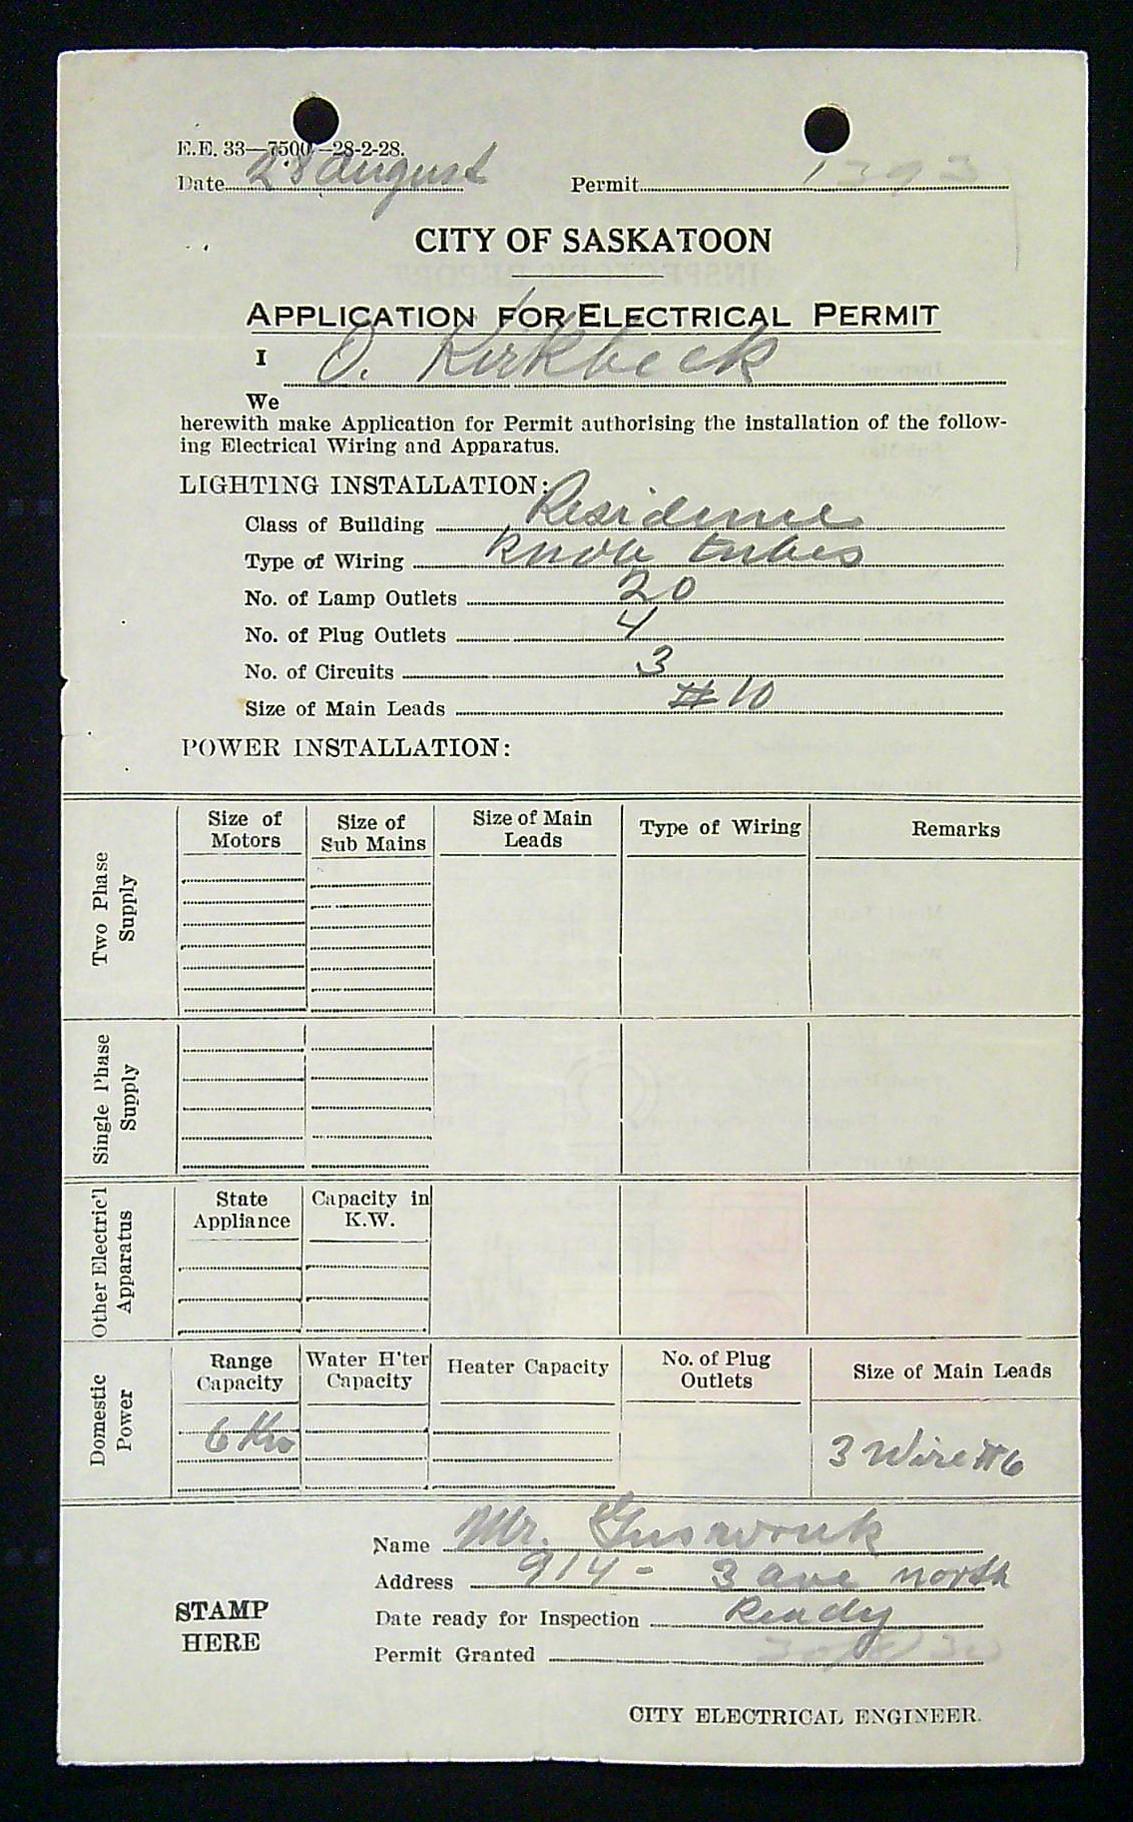 E.E. 33—7500—28-2-28.
Date 28 august Permit 1393
CITY OF SASKATOON
APPLICATION FOR ELECTRICAL PERMIT
I O. Kirkbeck
We
herewith make Application for Permit authorising the installation of the follow-
ing Electrical Wiring and Apparatus.
LIGHTING INSTALLATION:
Class of Building Residence
Type of Wiring Knob tubes
No. of Lamp Outlets 20
No. of Plug Outlets 4
No. of Circuits 3
Size of Main Leads #10
POWER INSTALLATION:
Two Phase Supply
Size of Motors
Size of Sub Mains
Size of Main Leads
Type of Wiring
Remarks
Single Phase Supply
Other Electric'l Apparatus
State Appliance
Capacity in K.W.
Domestic Power
Range Capacity
Water H'ter Capacity
Heater Capacity
No. of Plug Outlets
Size of Main Leads
6 Kw
3 Wire #6
Name Mr.
Address 914 - 3 ave north
Date ready for Inspection Ready
Permit Granted
STAMP
HERE
CITY ELECTRICAL ENGINEER.